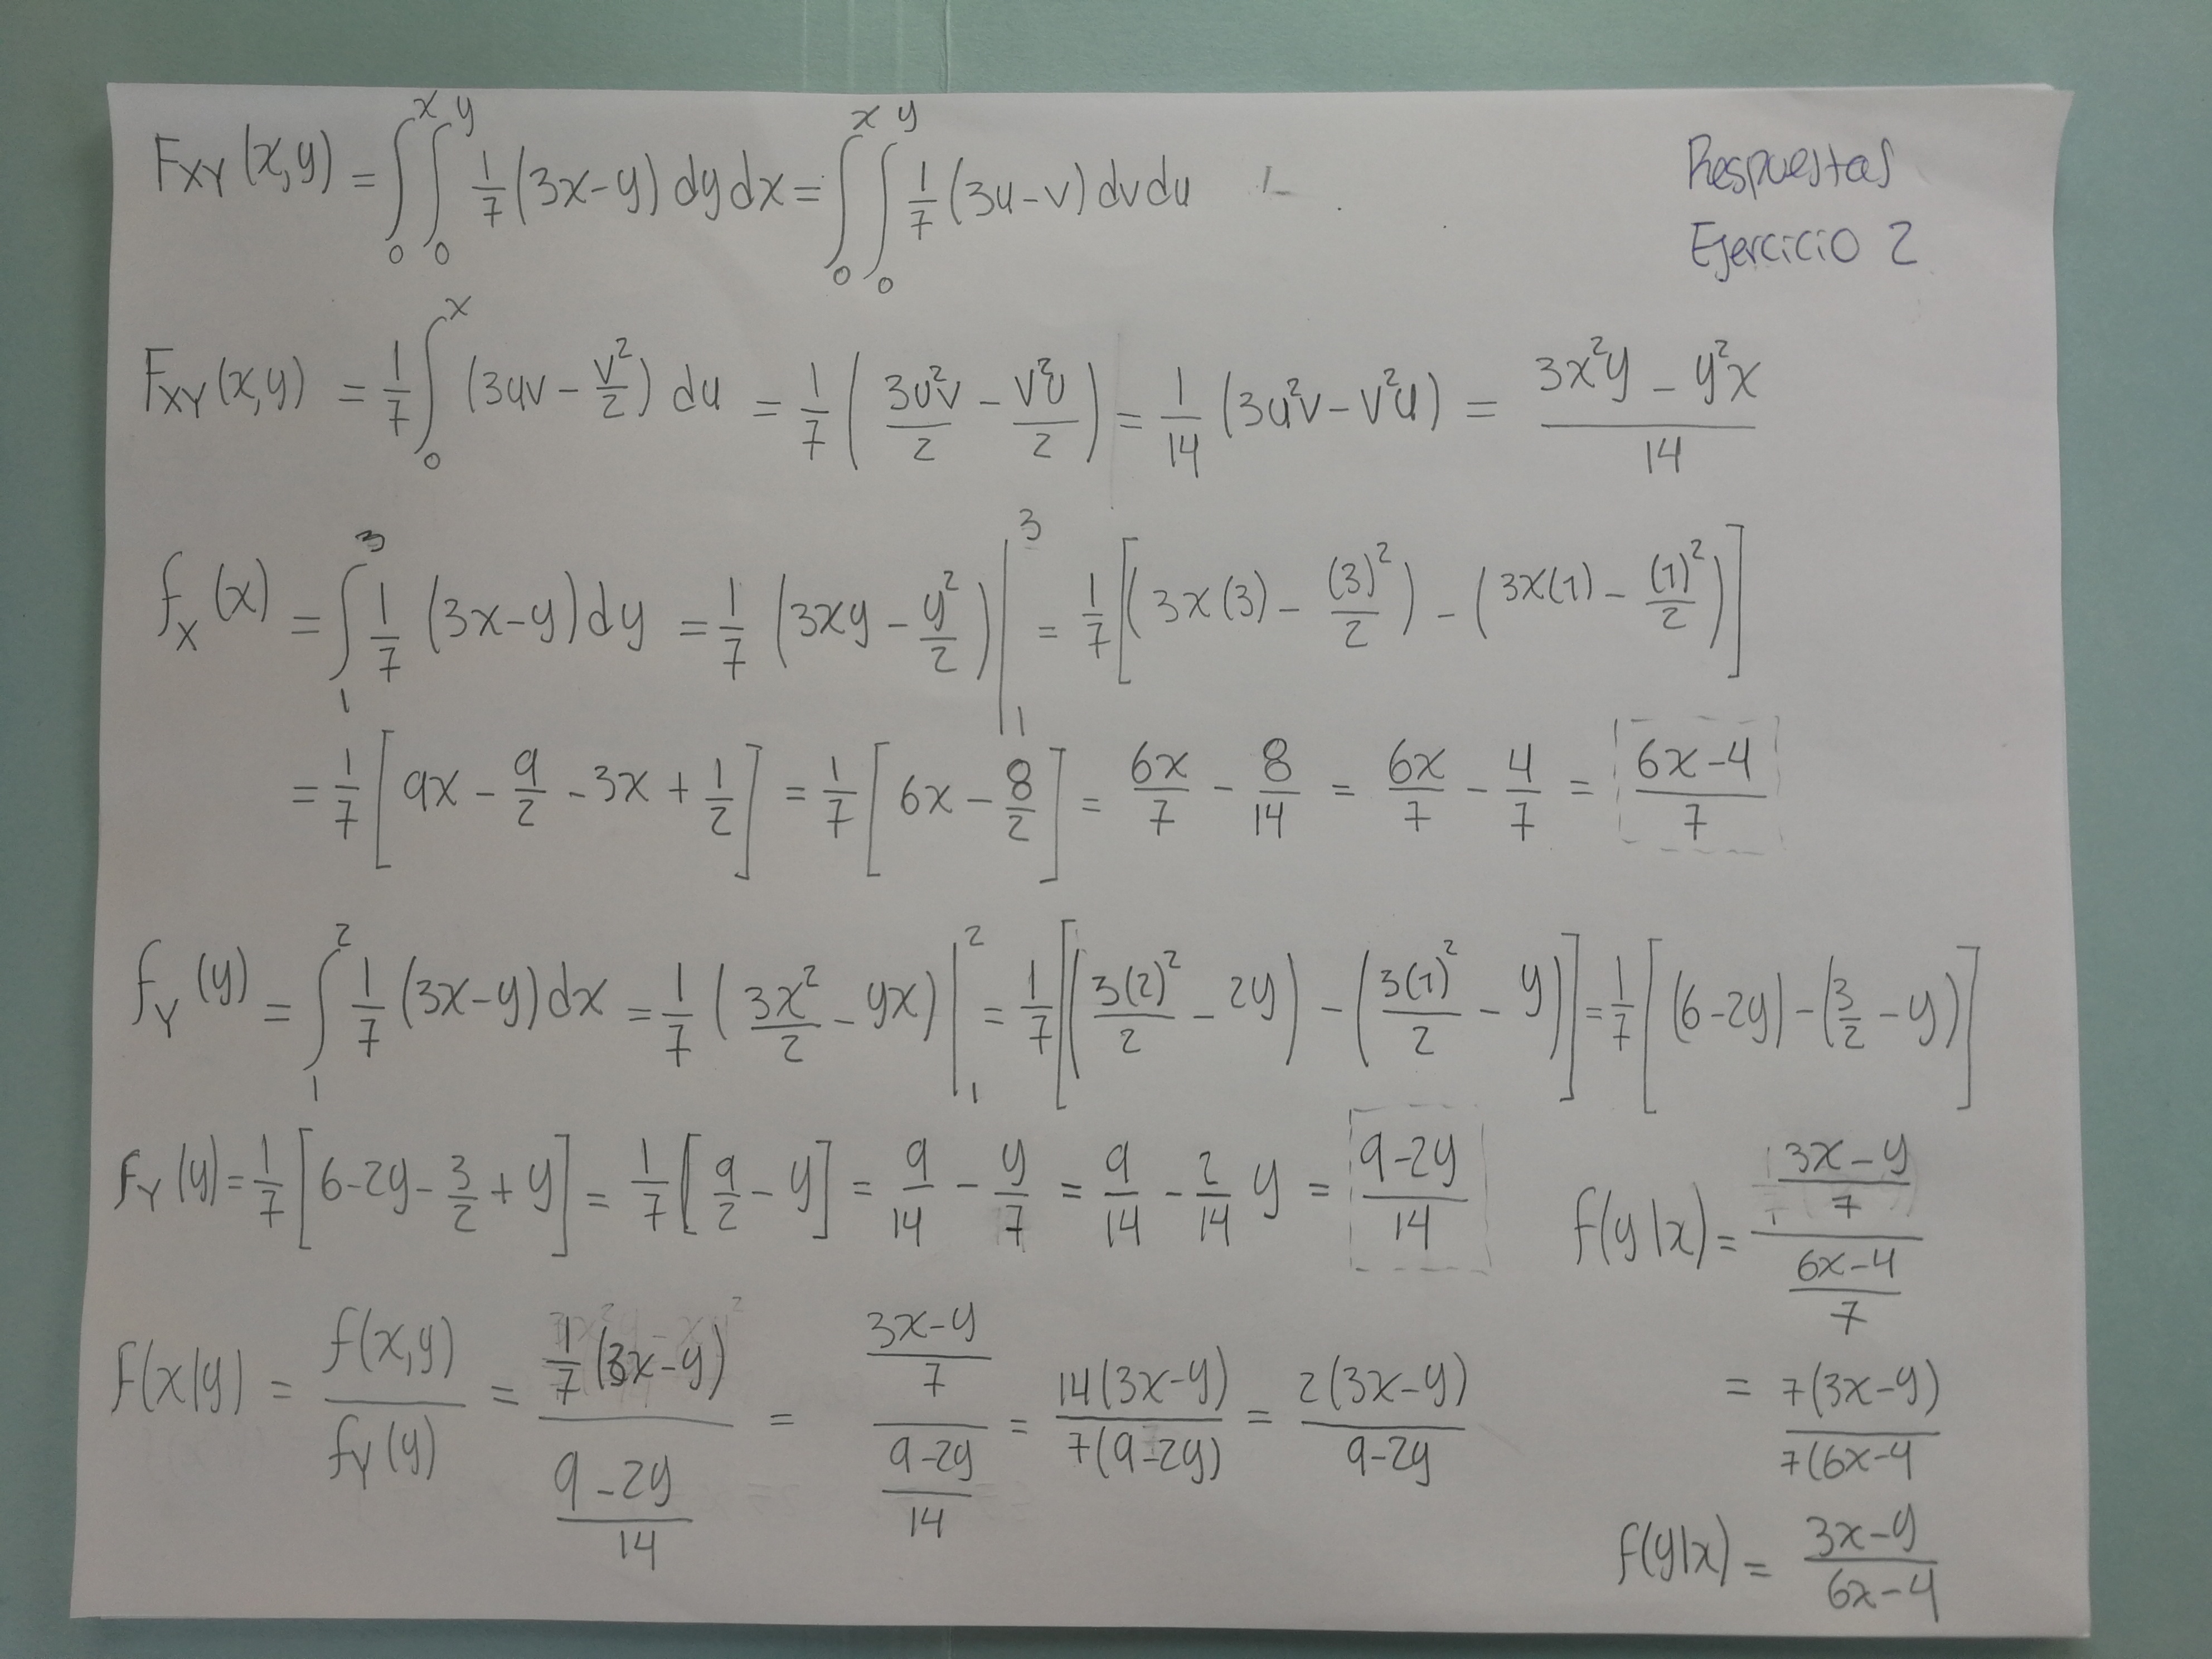 Respuestas
Ejercicio 2
F_XY (x,y) = ∫_0^x ∫_0^y 1/7 (3x-y) dy dx = ∫_0^x ∫_0^y 1/7 (3u-v) dv du
F_XY (x,y) = 1/7 ∫_0^x (3uv - v²/2) du = 1/7 (3u²v/2 - v²u/2) = 1/14 (3u²v - v²u) = (3x²y - y²x)/14
f_X (x) = ∫_1^3 1/7 (3x-y) dy = 1/7 (3xy - y²/2) |_1^3 = 1/7 [(3x(3) - (3)²/2) - (3x(1) - (1)²/2)]
= 1/7 [9x - 9/2 - 3x + 1/2] = 1/7 [6x - 8/2] = 6x/7 - 8/14 = 6x/7 - 4/7 = (6x-4)/7
f_Y (y) = ∫_1^2 1/7 (3x-y) dx = 1/7 (3x²/2 - yx) |_1^2 = 1/7 [(3(2)²/2 - 2y) - (3(1)²/2 - y)] = 1/7 [(6-2y) - (3/2 - y)]
f_Y (y) = 1/7 [6-2y - 3/2 + y] = 1/7 [9/2 - y] = 9/14 - y/7 = 9/14 - 2/14 y = (9-2y)/14
f(x|y) = f(x,y)/f_Y(y) = (1/7 (3x-y))/((9-2y)/14) = ((3x-y)/7)/((9-2y)/14) = 14(3x-y)/7(9-2y) = 2(3x-y)/(9-2y)
f(y|x) = ((3x-y)/7)/((6x-4)/7)
= 7(3x-y)/7(6x-4
f(y|x) = (3x-y)/(6x-4)